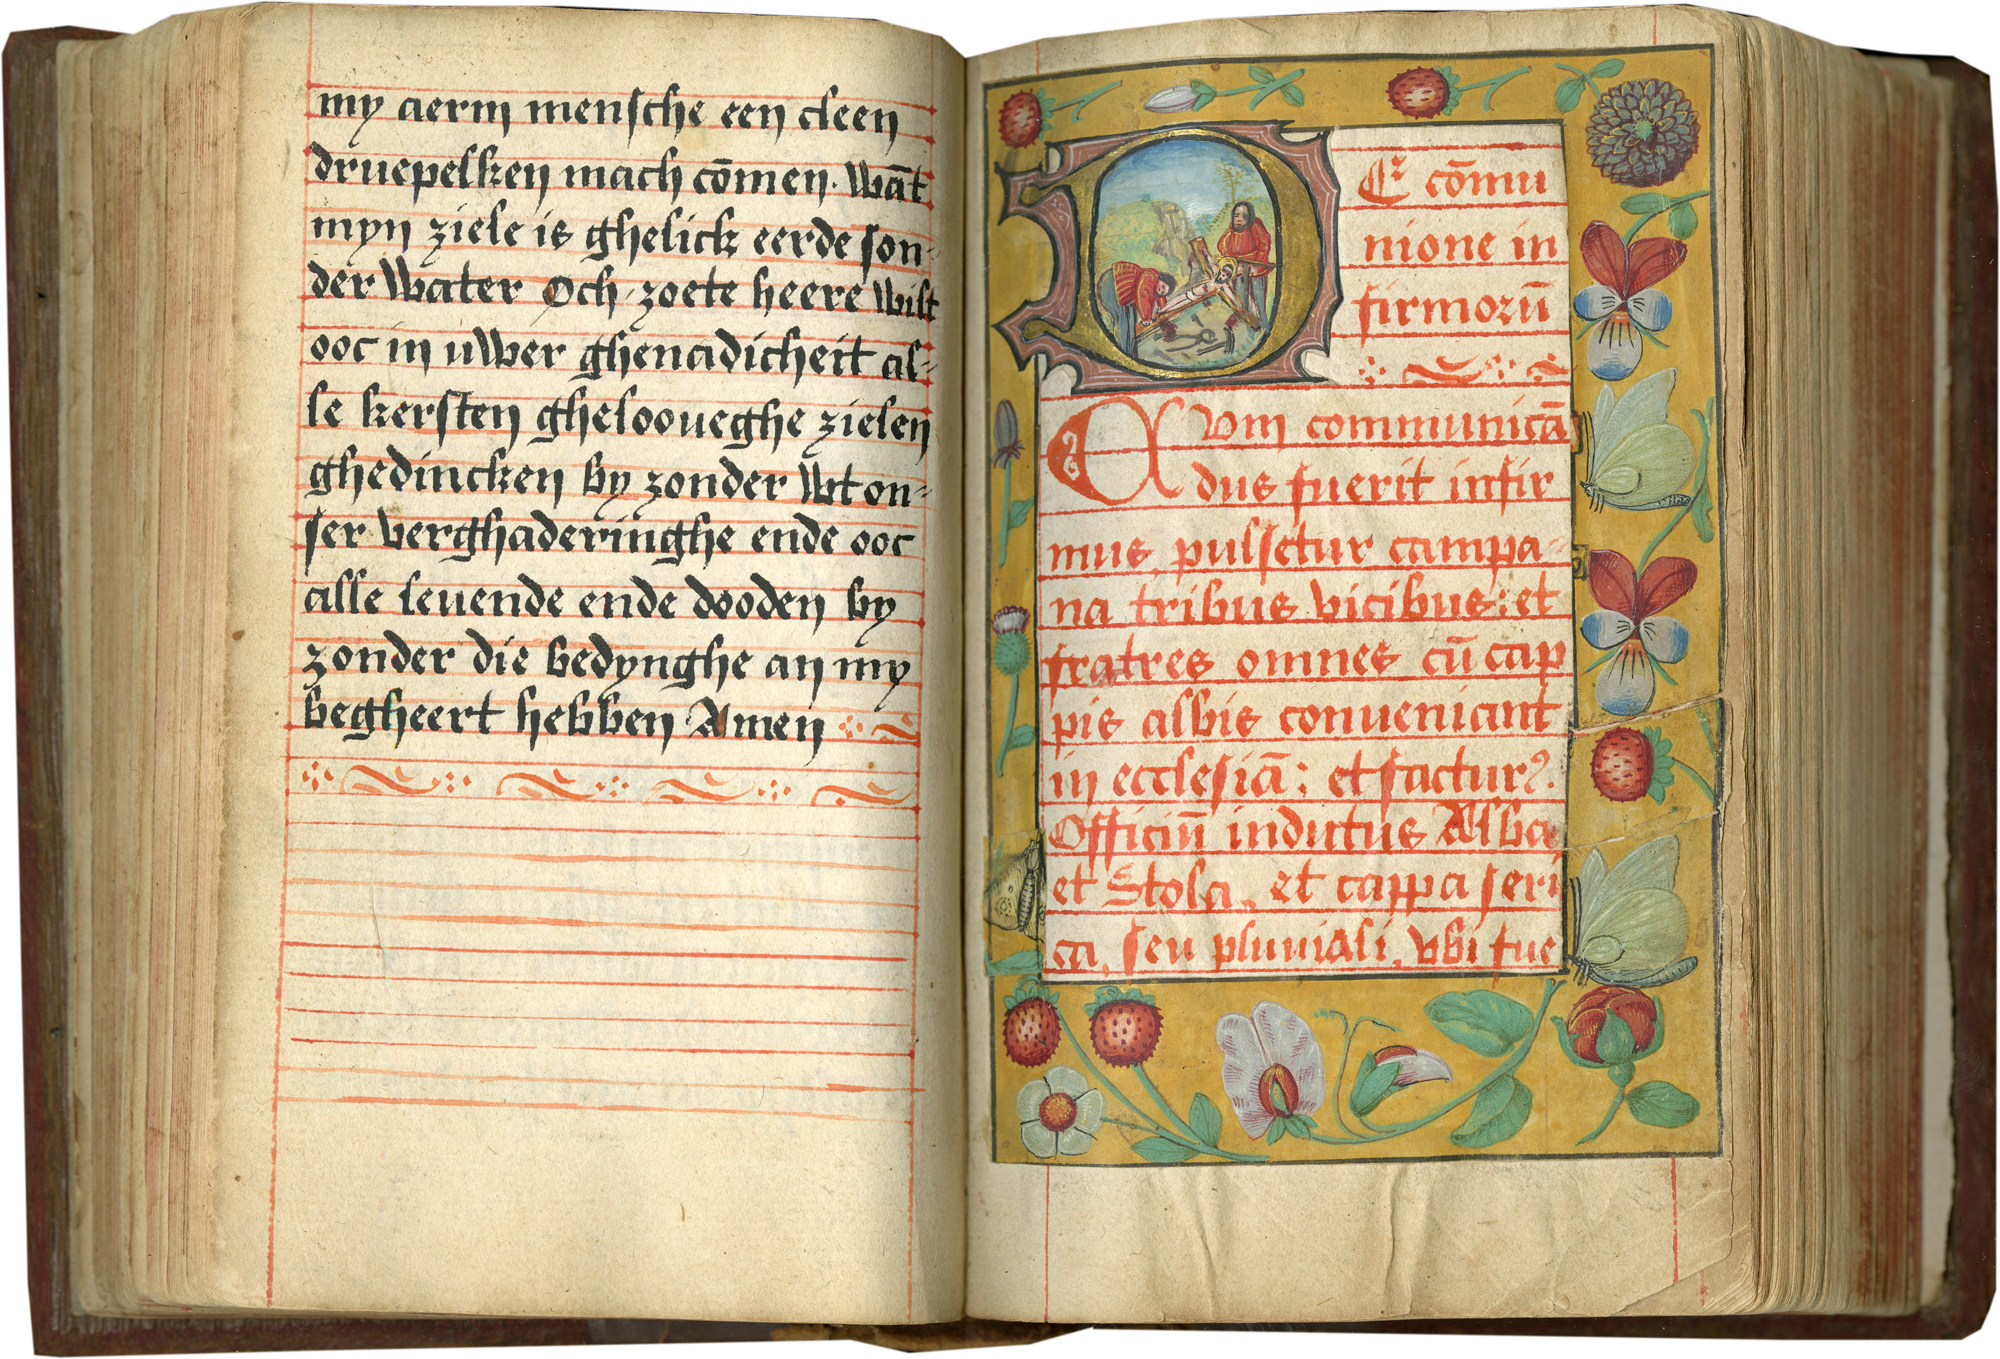 my aerm mensche een cleen
druepelken mach cōmen. Wāt
myn ziele is ghelick eerde son-
der Water Och zoete heere Wilt
ooc in uWer ghenadicheit al-
le kersten ghelooueghe zielen
ghedincken by zonder Wt on-
ser verghaderinghe ende ooc
alle leuende ende dooden by
zonder die bedynghe an my
begheert hebben Amen
DE cōmu
nione in
firmorū
Cum communicā
dus fuerit infir
mus, pulsetur campa-
na tribus vicibus: et
fratres omnes cū cap
pis albis conueniant
in ecclesiā: et facturꝰ.
Officiū indutus Alba
et Stola, et cappa seri
ca, seu pluuiali, vbi fue